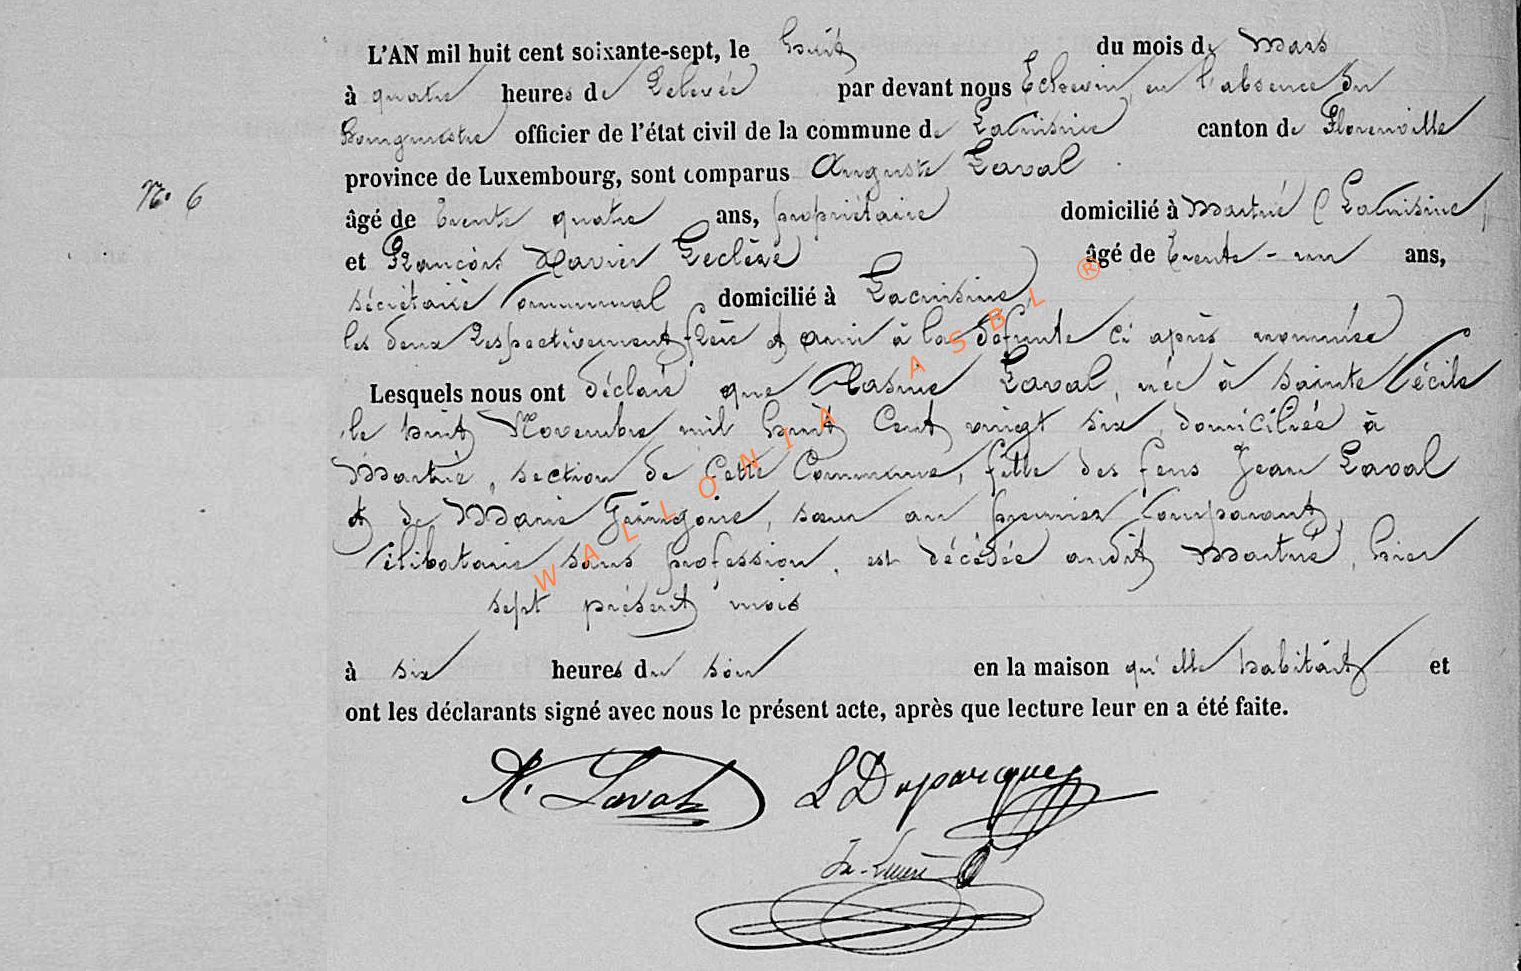 L'AN mil huit cent soixante-sept, le huit du mois de Mars
à quatre heures de Relevée par devant nous Echevin, en l'absence du
Bourgmestre officier de l'état civil de la commune de Lacuisine canton de Florenville
province de Luxembourg, sont comparus Auguste Laval
N° 6
âgé de trente quatre ans, propriétaire domicilié à Martué (Lacuisine)
et François Xavier Leclère âgé de trente-un ans,
sécrétaire Communal domicilié à Lacuisine
les deux respectivement frère et ami à la défunte ci après nommée
Lesquels nous ont déclaré que Laval, née à Sainte Cécile
le huit Novembre mil huit Cent vingt six, domiciliée à
Martué, section de cette Commune, fille des feus Jean Laval
et de Marie, sœur au premier Comparant,
Célibataire sans profession, est décédée audit Martué, hier
sept présent mois
à six heures du soir en la maison qu'elle habitait et
ont les déclarants signé avec nous le présent acte, après que lecture leur en a été faite.
A. Laval L Duparque
WALLONIA ASBL ®